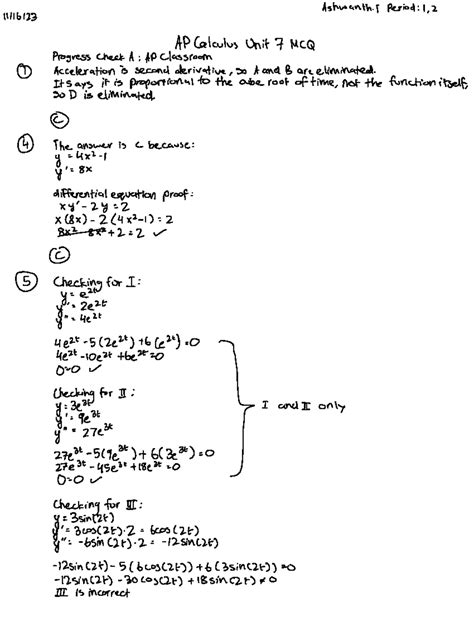 11/16/23
Ashwanth.S Period: 1,2
AP Calculus Unit 7 MCQ
Progress Check A: AP Classroom
① Acceleration is second derivative, so A and B are eliminated.
It says it is proportional to the cube root of time, not the function itself,
so D is eliminated.
C
④ The answer is C because:
y = 4x²-1
y' = 8x
differential equation proof:
xy' - 2y = 2
x(8x) - 2(4x²-1) = 2
8x² - 8x² + 2 = 2 ✓
C
⑤ Checking for I:
y = e^2t
y' = 2e^2t
y" = 4e^2t
4e^2t - 5(2e^2t) + 6(e^2t) = 0
4e^2t - 10e^2t + 6e^2t = 0
0=0 ✓
Checking for II:
y = 3e^3t
y' = 9e^3t
y" = 27e^3t
I and II only
27e^3t - 5(9e^3t) + 6(3e^3t) = 0
27e^3t - 45e^3t + 18e^3t = 0
0=0 ✓
Checking for III:
y = 3sin(2t)
y' = 3cos(2t)·2 = 6cos(2t)
y" = -6sin(2t)·2 = -12sin(2t)
-12sin(2t) - 5(6cos(2t)) + 6(3sin(2t)) = 0
-12sin(2t) - 30cos(2t) + 18sin(2t) ≠ 0
III is incorrect